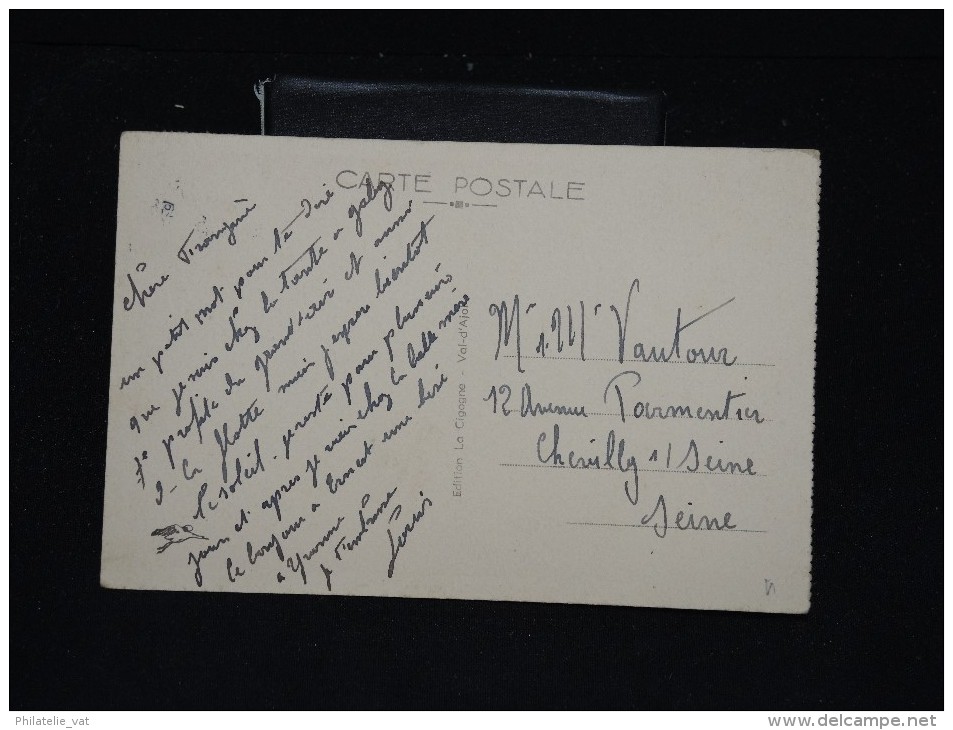 CARTE POSTALE
Chère
un petit mot pour te dire
que je suis chez la tante a
Je profite du grand air et
la flotte mais j'espere bientot
le soleil. je reste pour plusieurs
jours et apres je vais chez la belle mere
le bonjour a Ernest une bisé
a Yvonne
je t'embrasse
Louis
Edition La Cigogne - Val-d'Ajol
Mr & Mme Vautour
12 Avenue Parmentier
Chevilly s/ Seine
Seine
Philatelie_vat
www.delcampe.net